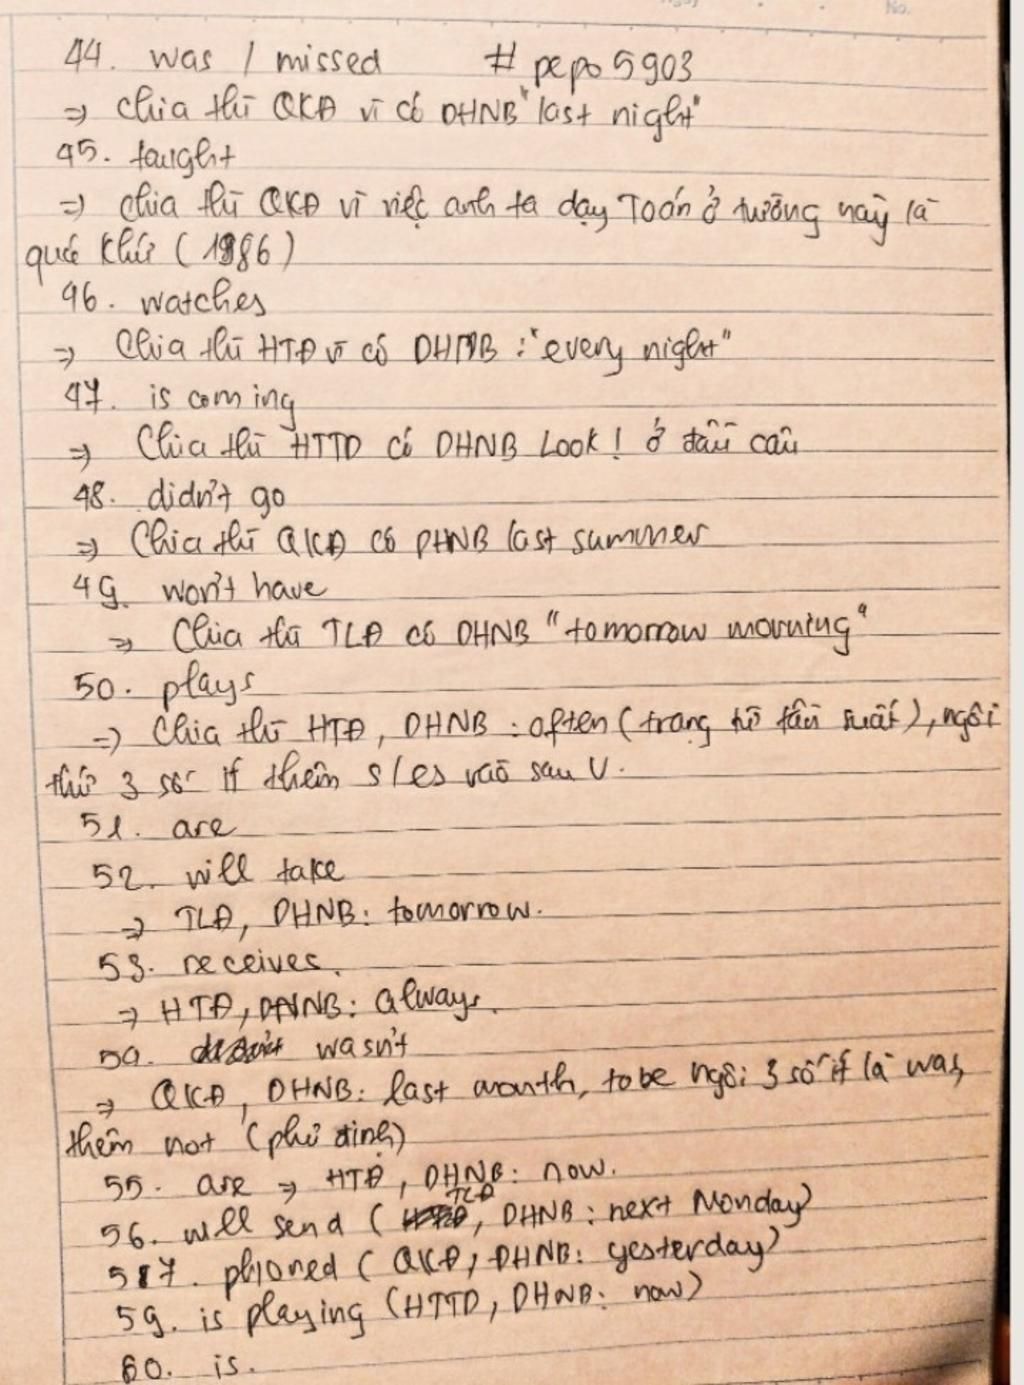 No.
44. was / missed # pepo5903
=> Chia thì QKĐ vì có DHNB "last night"
45. taught
=> chia thì QKĐ vì việc anh ta dạy Toán ở trường này là
quá khứ (1986)
46. watches
=> Chia thì HTĐ vì có DHNB : "every night"
47. is coming
=> Chia thì HTTD có DHNB Look! ở đầu câu
48. didn't go
=> Chia thì QKĐ có DHNB last summer
49. won't have
=> Chia thì TLĐ có DHNB "tomorrow morning"
50. plays
=> Chia thì HTĐ, DHNB : often (trạng từ tần suất), ngôi
thứ 3 số ít thêm s/es vào sau V.
51. are
52. will take
=> TLĐ, DHNB: tomorrow.
53. receives.
=> HTĐ, DHNB: always.
54. wasn't
=> QKĐ, DHNB: last month, tobe ngôi 3 số ít là was,
thêm not (phủ định)
55. are => HTĐ, DHNB: now.
56. will send (TLĐ, DHNB: next Monday)
57. phoned (QKĐ, DHNB: yesterday)
59. is playing (HTTD, DHNB: now)
60. is.